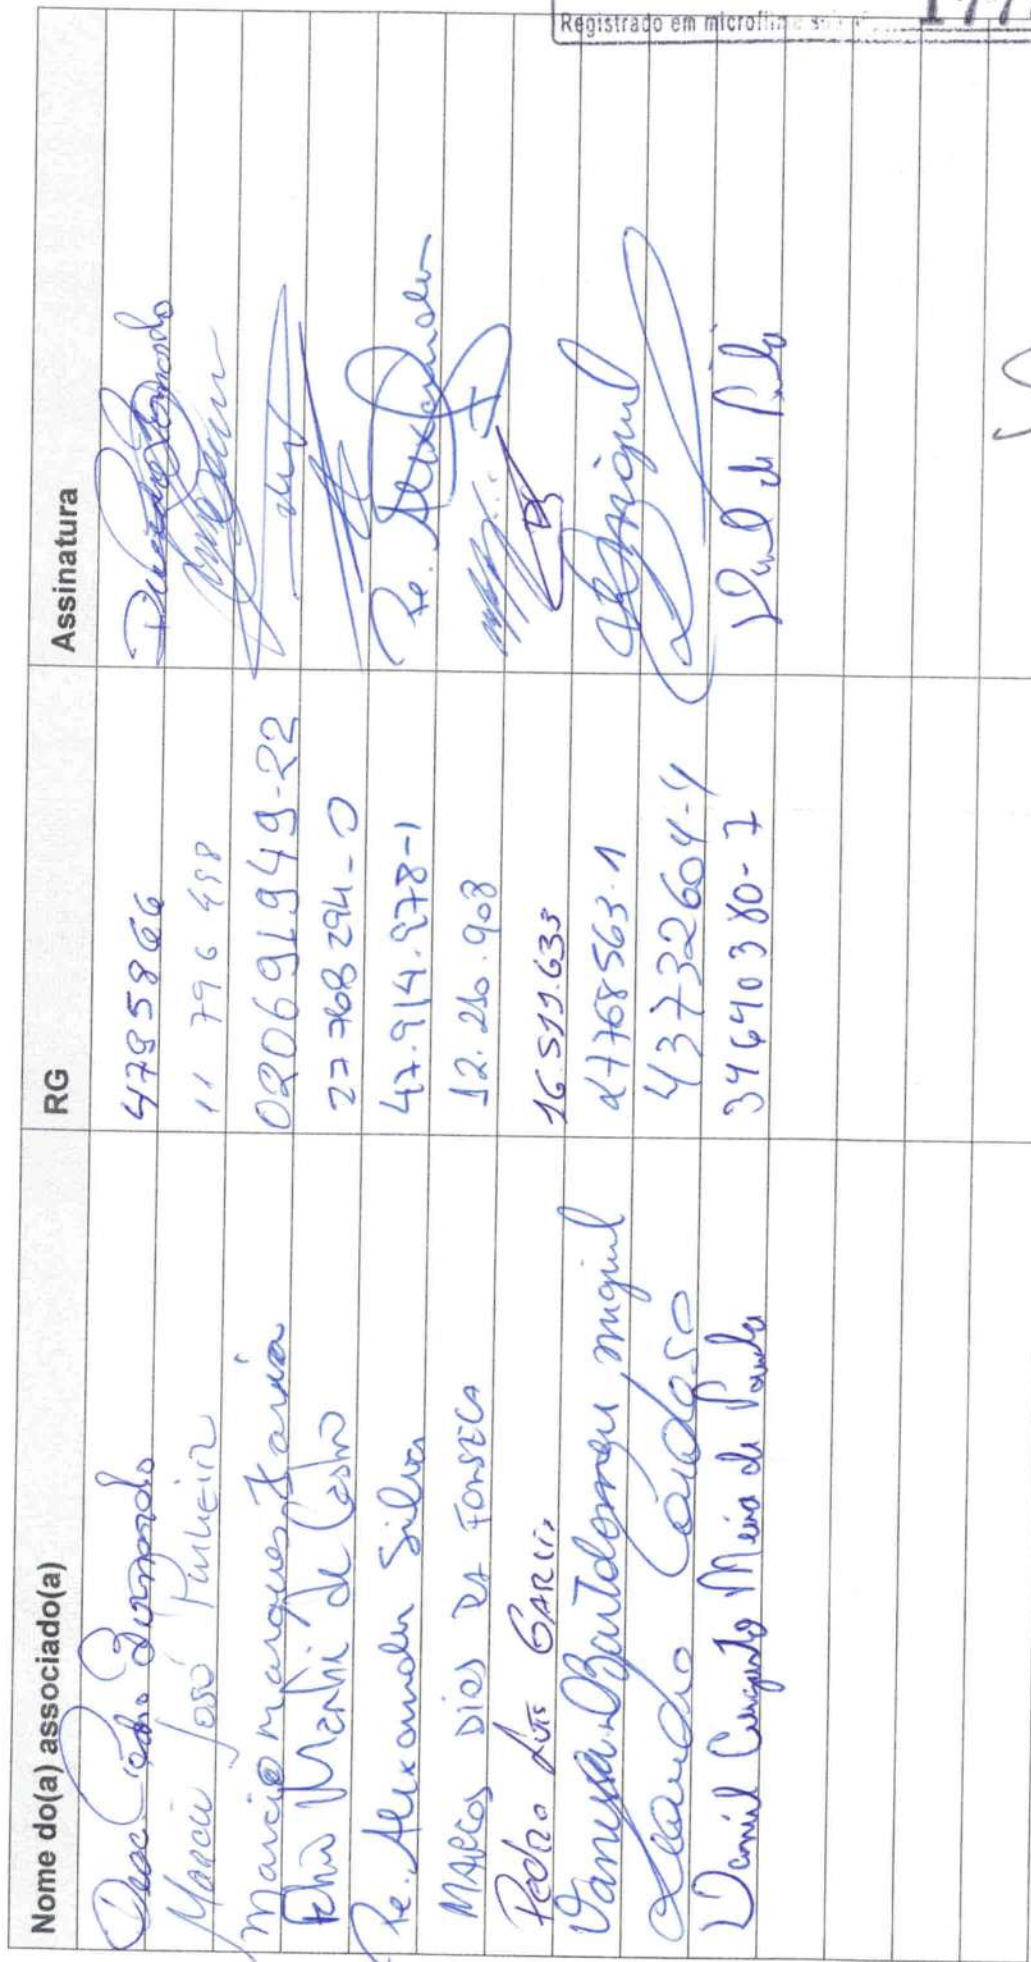 Registrado em microfilme sob nº 177
Nome do(a) associado(a) RG Assinatura
Pedro Bernardo 4795866
Marcio José Pinheiro 11 796 498
Marcio Marques Faria 020691949-22
Mantini de Castro 27 768 294-0
Pe. Alexandre Silva 47.914.978-1 Pe. Alexandre
MARCOS DIAS DA FONSECA 12.210.908
Pedro Luis GARCIA 16.511.633
Vanessa D Bartolomeu Miguel 27768563-1
Leandro Cardoso 43732604-4
Daniel Augusto Meira de Paula 34640380-7 Daniel de Paula